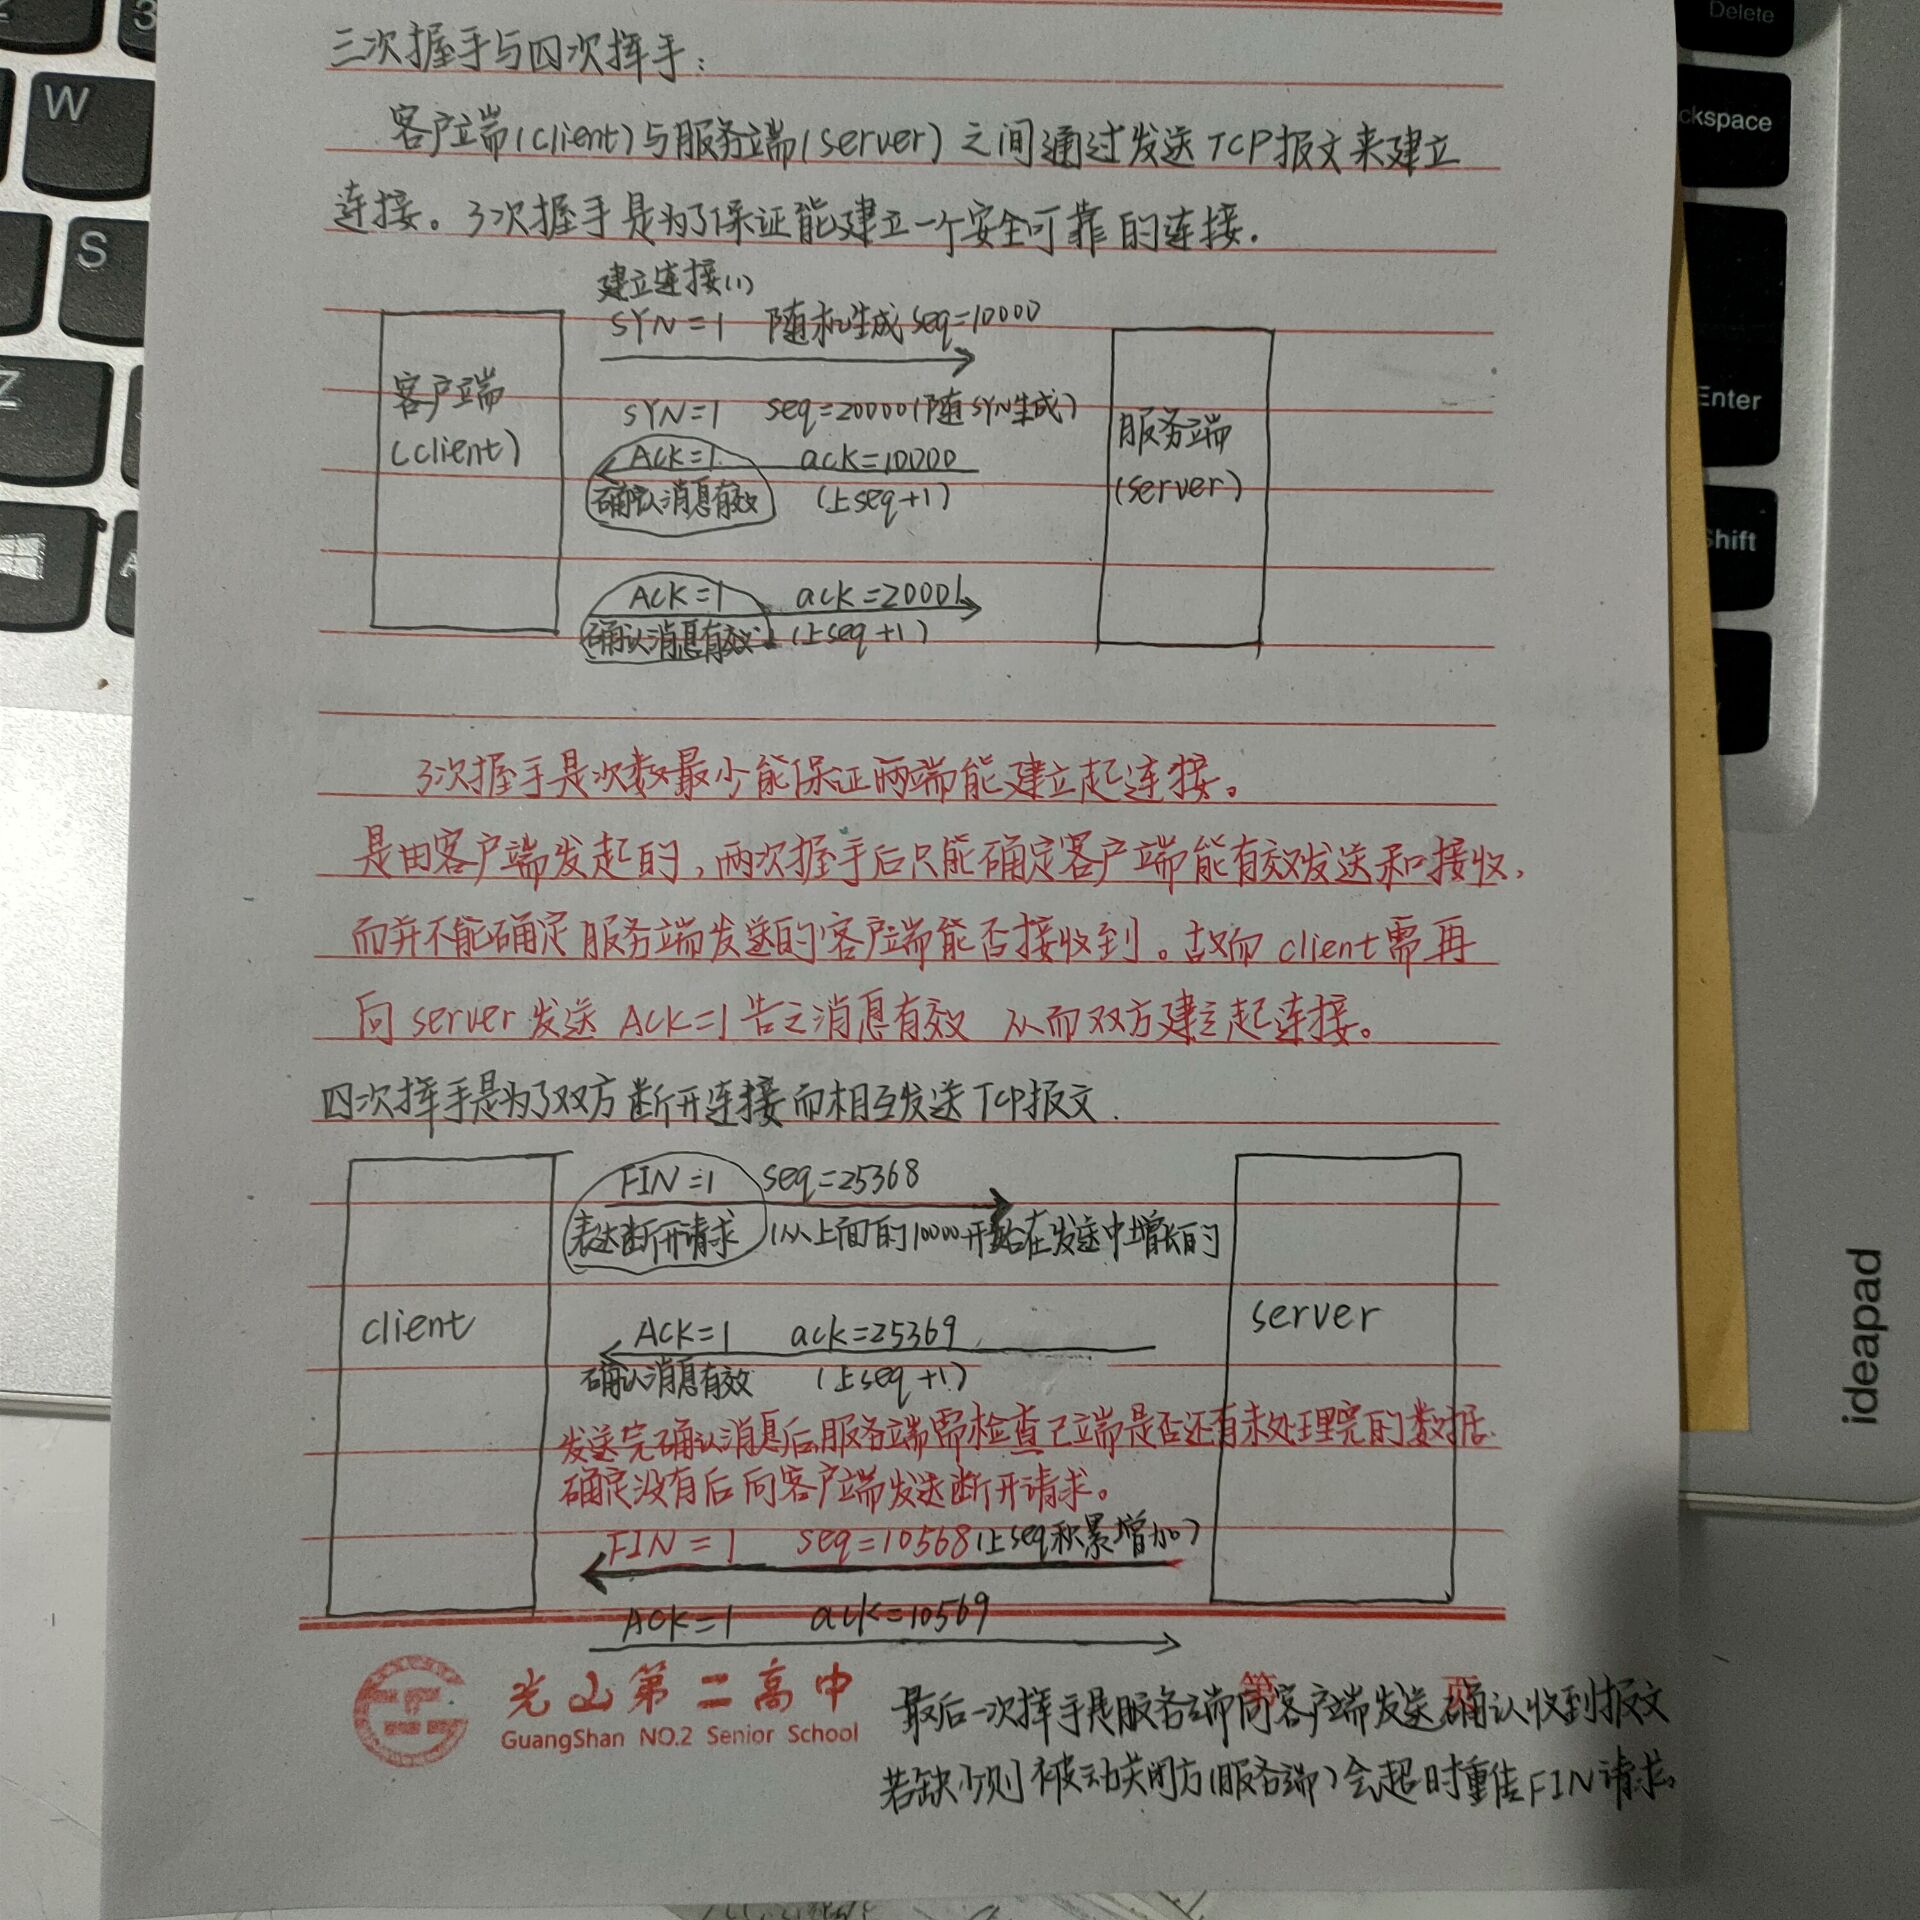 三次握手与四次挥手：
客户端(client)与服务端(server)之间通过发送TCP报文来建立
连接。3次握手是为了保证能建立一个安全可靠的连接.
建立连接(1)
SYN=1 随机生成seq=10000
客户端
(client)
SYN=1 seq=20000(随SYN生成)
ACK=1 ack=10000
确认消息有效 (上seq+1)
服务端
(server)
ACK=1 ack=20001
确认消息有效 (上seq+1)
3次握手是次数最少能保证两端能建立起连接。
是由客户端发起的,两次握手后只能确定客户端能有效发送和接收,
而并不能确定服务端发送的客户端能否接收到。故而client需再
向server发送ACK=1告之消息有效 从而双方建立起连接。
四次挥手是为了双方断开连接而相互发送TCP报文.
FIN=1 seq=25368
表达断开请求 (从上面的10000开始在发送中增长的
client
server
ACK=1 ack=25369
确认消息有效 (上seq+1)
发送完确认消息后服务端需检查己端是否还有未处理完的数据.
确定没有后向客户端发送断开请求。
FIN=1 seq=10568(上seq积累增加)
ACK=1 ack=10569
光山第二高中
GuangShan NO.2 Senior School
第 页
最后一次挥手是服务端向客户端发送确认收到报文
若缺少则被动关闭方(服务端)会超时重传FIN请求。
W
3
S
Z
A
Delete
ckspace
Enter
Shift
ideapad